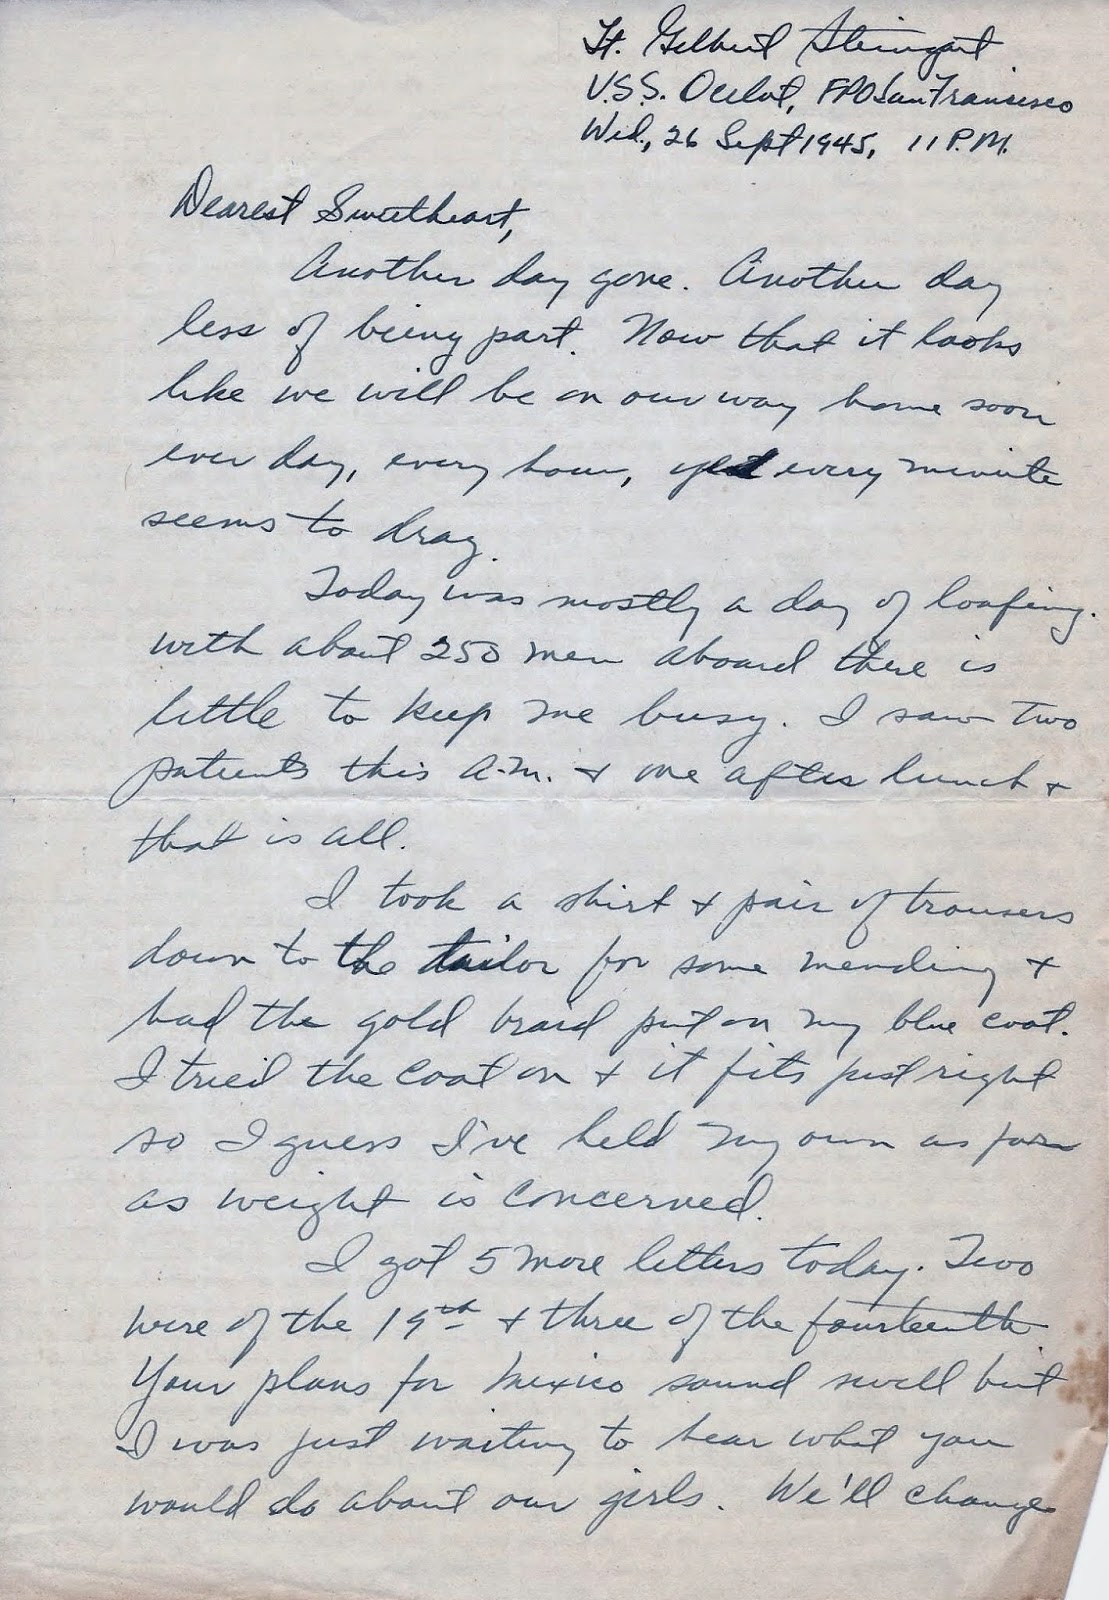 Lt. Gilbert Steingart
U.S.S. Ocelot, FPO San Francisco
Wed., 26 Sept 1945, 11 P.M.
Dearest Sweetheart,
Another day gone. Another day
less of being part. Now that it looks
like we will be on our way home soon
ever day, every hour, yes every minute
seems to drag.
Today was mostly a day of loafing.
with about 250 men aboard there is
little to keep me busy. I saw two
patients this A.M. & one after lunch &
that is all.
I took a shirt & pair of trousers
down to the tailor for some mending &
had the gold braid put on my blue coat.
I tried the coat on & it fits just right
so I guess I've held my own as far
as weight is concerned.
I got 5 more letters today. Two
were of the 19th & three of the fourteenth
Your plans for Mexico sound swell but
I was just waiting to hear what you
would do about our girls. We'll change